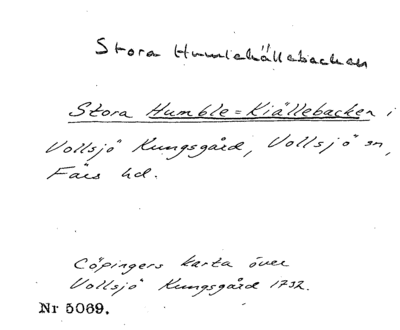 Stora Humlekällebacken
Stora Humble=Kiällebacken i
Vollsjö Kungsgård, Vollsjö sn,
Färs hd.
Cöpingers karta över
Vollsjö Kungsgård 1732.
Nr 5069.